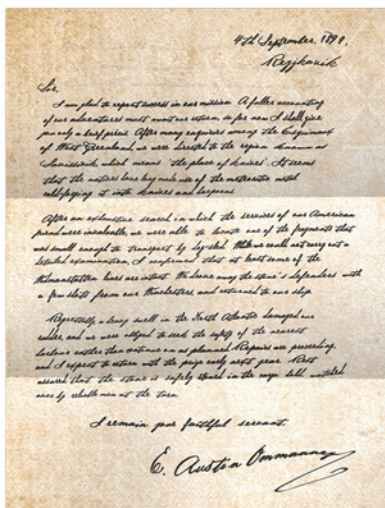 4th September, 1898,
Reyjkavik
Sir,
I am glad to report success in our mission. A fuller accounting
of our adventures must await our return so for now I shall give
you only a brief précis. After many enquiries among the Esquimaux
of West Greenland, we were directed to the region known as
Savissivik which means 'the place of knives'. It seems
that the natives have long made use of the meteoritic metal
cold-forging it into knives and harpoons.
After an extensive search in which the services of our American
friend were invaluable, we were able to locate one of the fragments that
was small enough to transport by dog-sled. While we could not carry out a
detailed examination, I confirmed that at least some of the
lines are intact. We drove away the stone's defenders with
a few shots from our Winchesters, and returned to our ship.
Regrettably, a heavy swell in the North Atlantic damaged our
rudder, and we were obliged to seek the safety of the nearest
harbour rather than continue on as planned. Repairs are proceeding
and I expect to return with the prize early next year. Rest
assured that the stone is safely stored in the cargo hold, watched
over by reliable men at the turn.
I remain your faithful servant.
E. Austin Ommanney